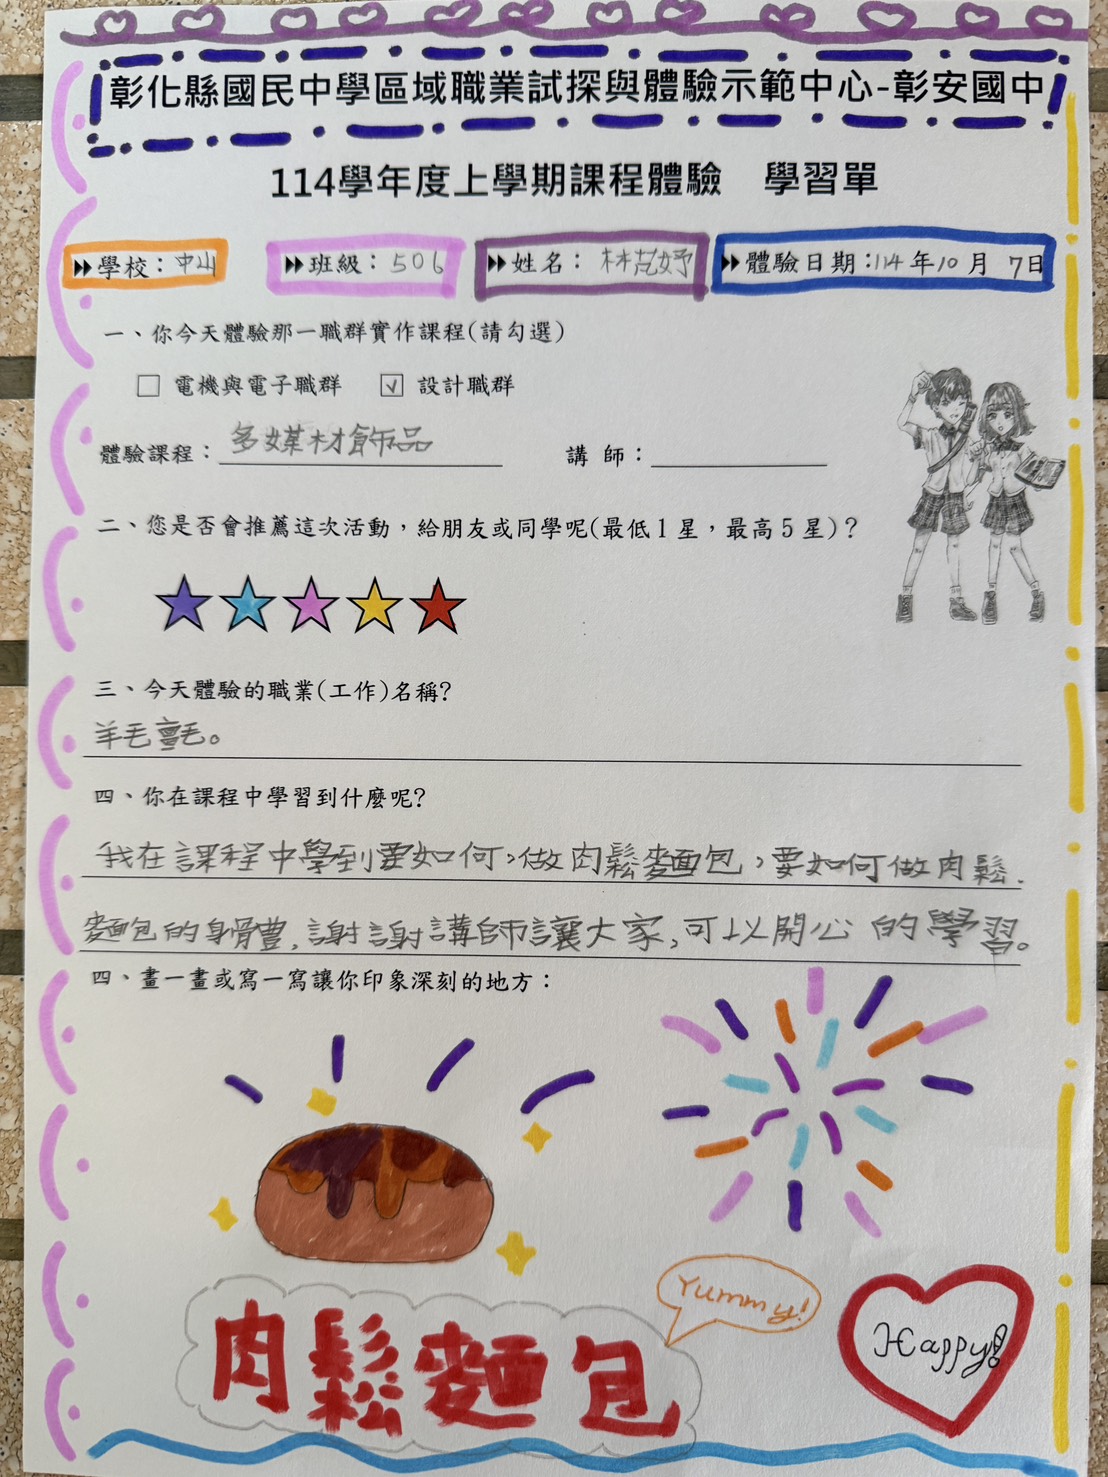 彰化縣國民中學區域職業試探與體驗示範中心-彰安國中
114學年度上學期課程體驗 學習單
學校：中山 班級：506 姓名：林芃妤 體驗日期：114年10月7日
一、你今天體驗那一職群實作課程(請勾選)
□ 電機與電子職群 ☑ 設計職群
體驗課程：多媒材飾品 講 師：
二、您是否會推薦這次活動，給朋友或同學呢(最低1星，最高5星)？
三、今天體驗的職業(工作)名稱?
羊毛氈。
四、你在課程中學習到什麼呢?
我在課程中學到要如何，做肉鬆麵包，要如何做肉鬆
麵包的身體，謝謝講師讓大家，可以開心的學習。
四、畫一畫或寫一寫讓你印象深刻的地方：
Yummy!
Happy!
肉鬆麵包